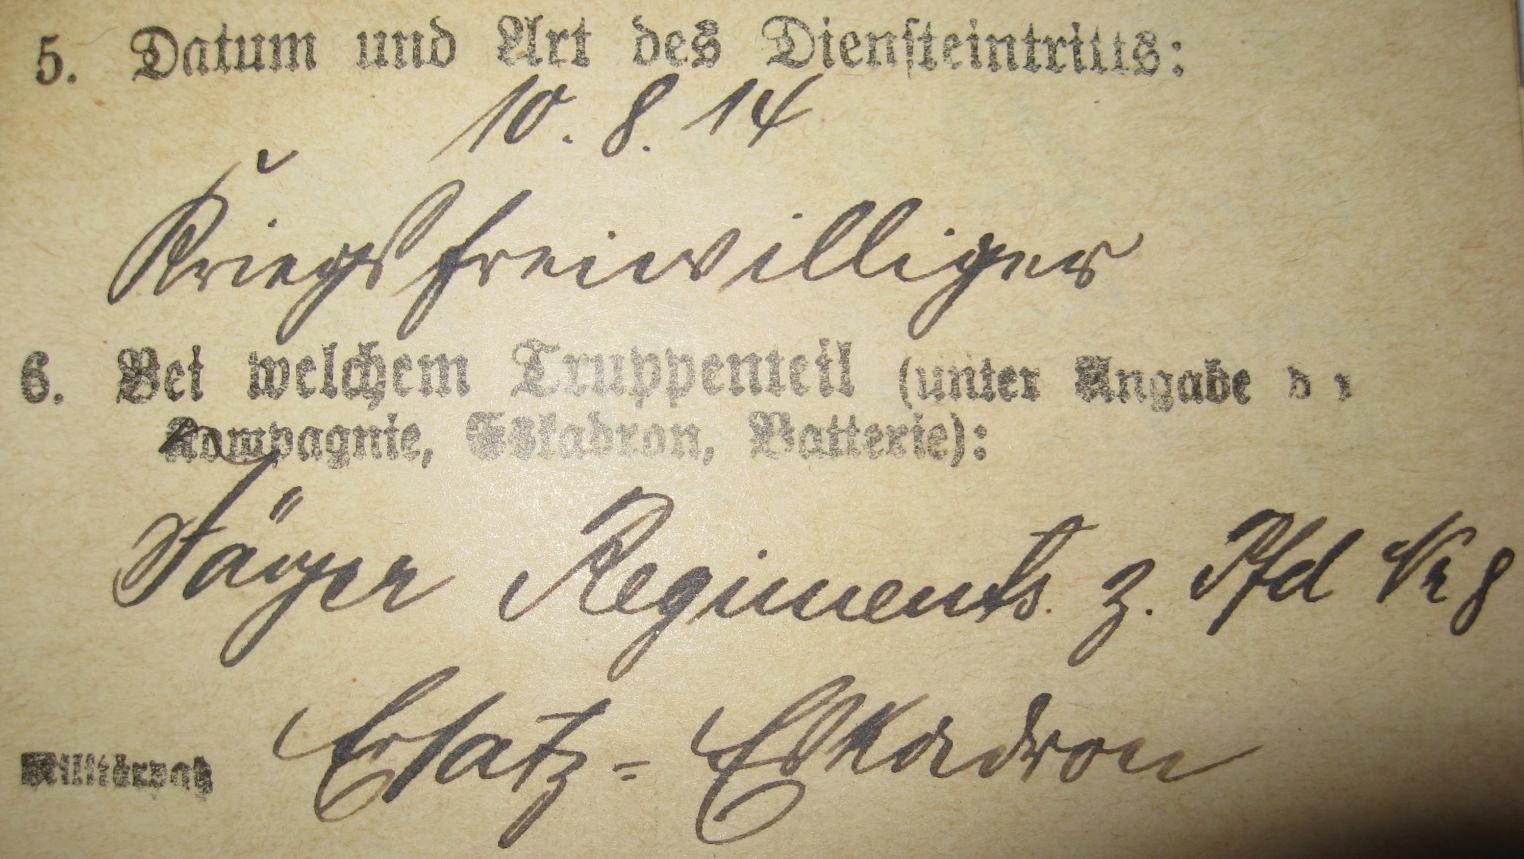 5. Datum und Art des Diensteintritts:
10. 8. 14
Kriegsfreiwilliger
6. Bei welchem Truppenteil (unter Angabe d r
Kompagnie, Eskadron, Batterie):
Jäger Regiments z. Pfd Nr 8
Ersatz = Eskadron
Militärpaß